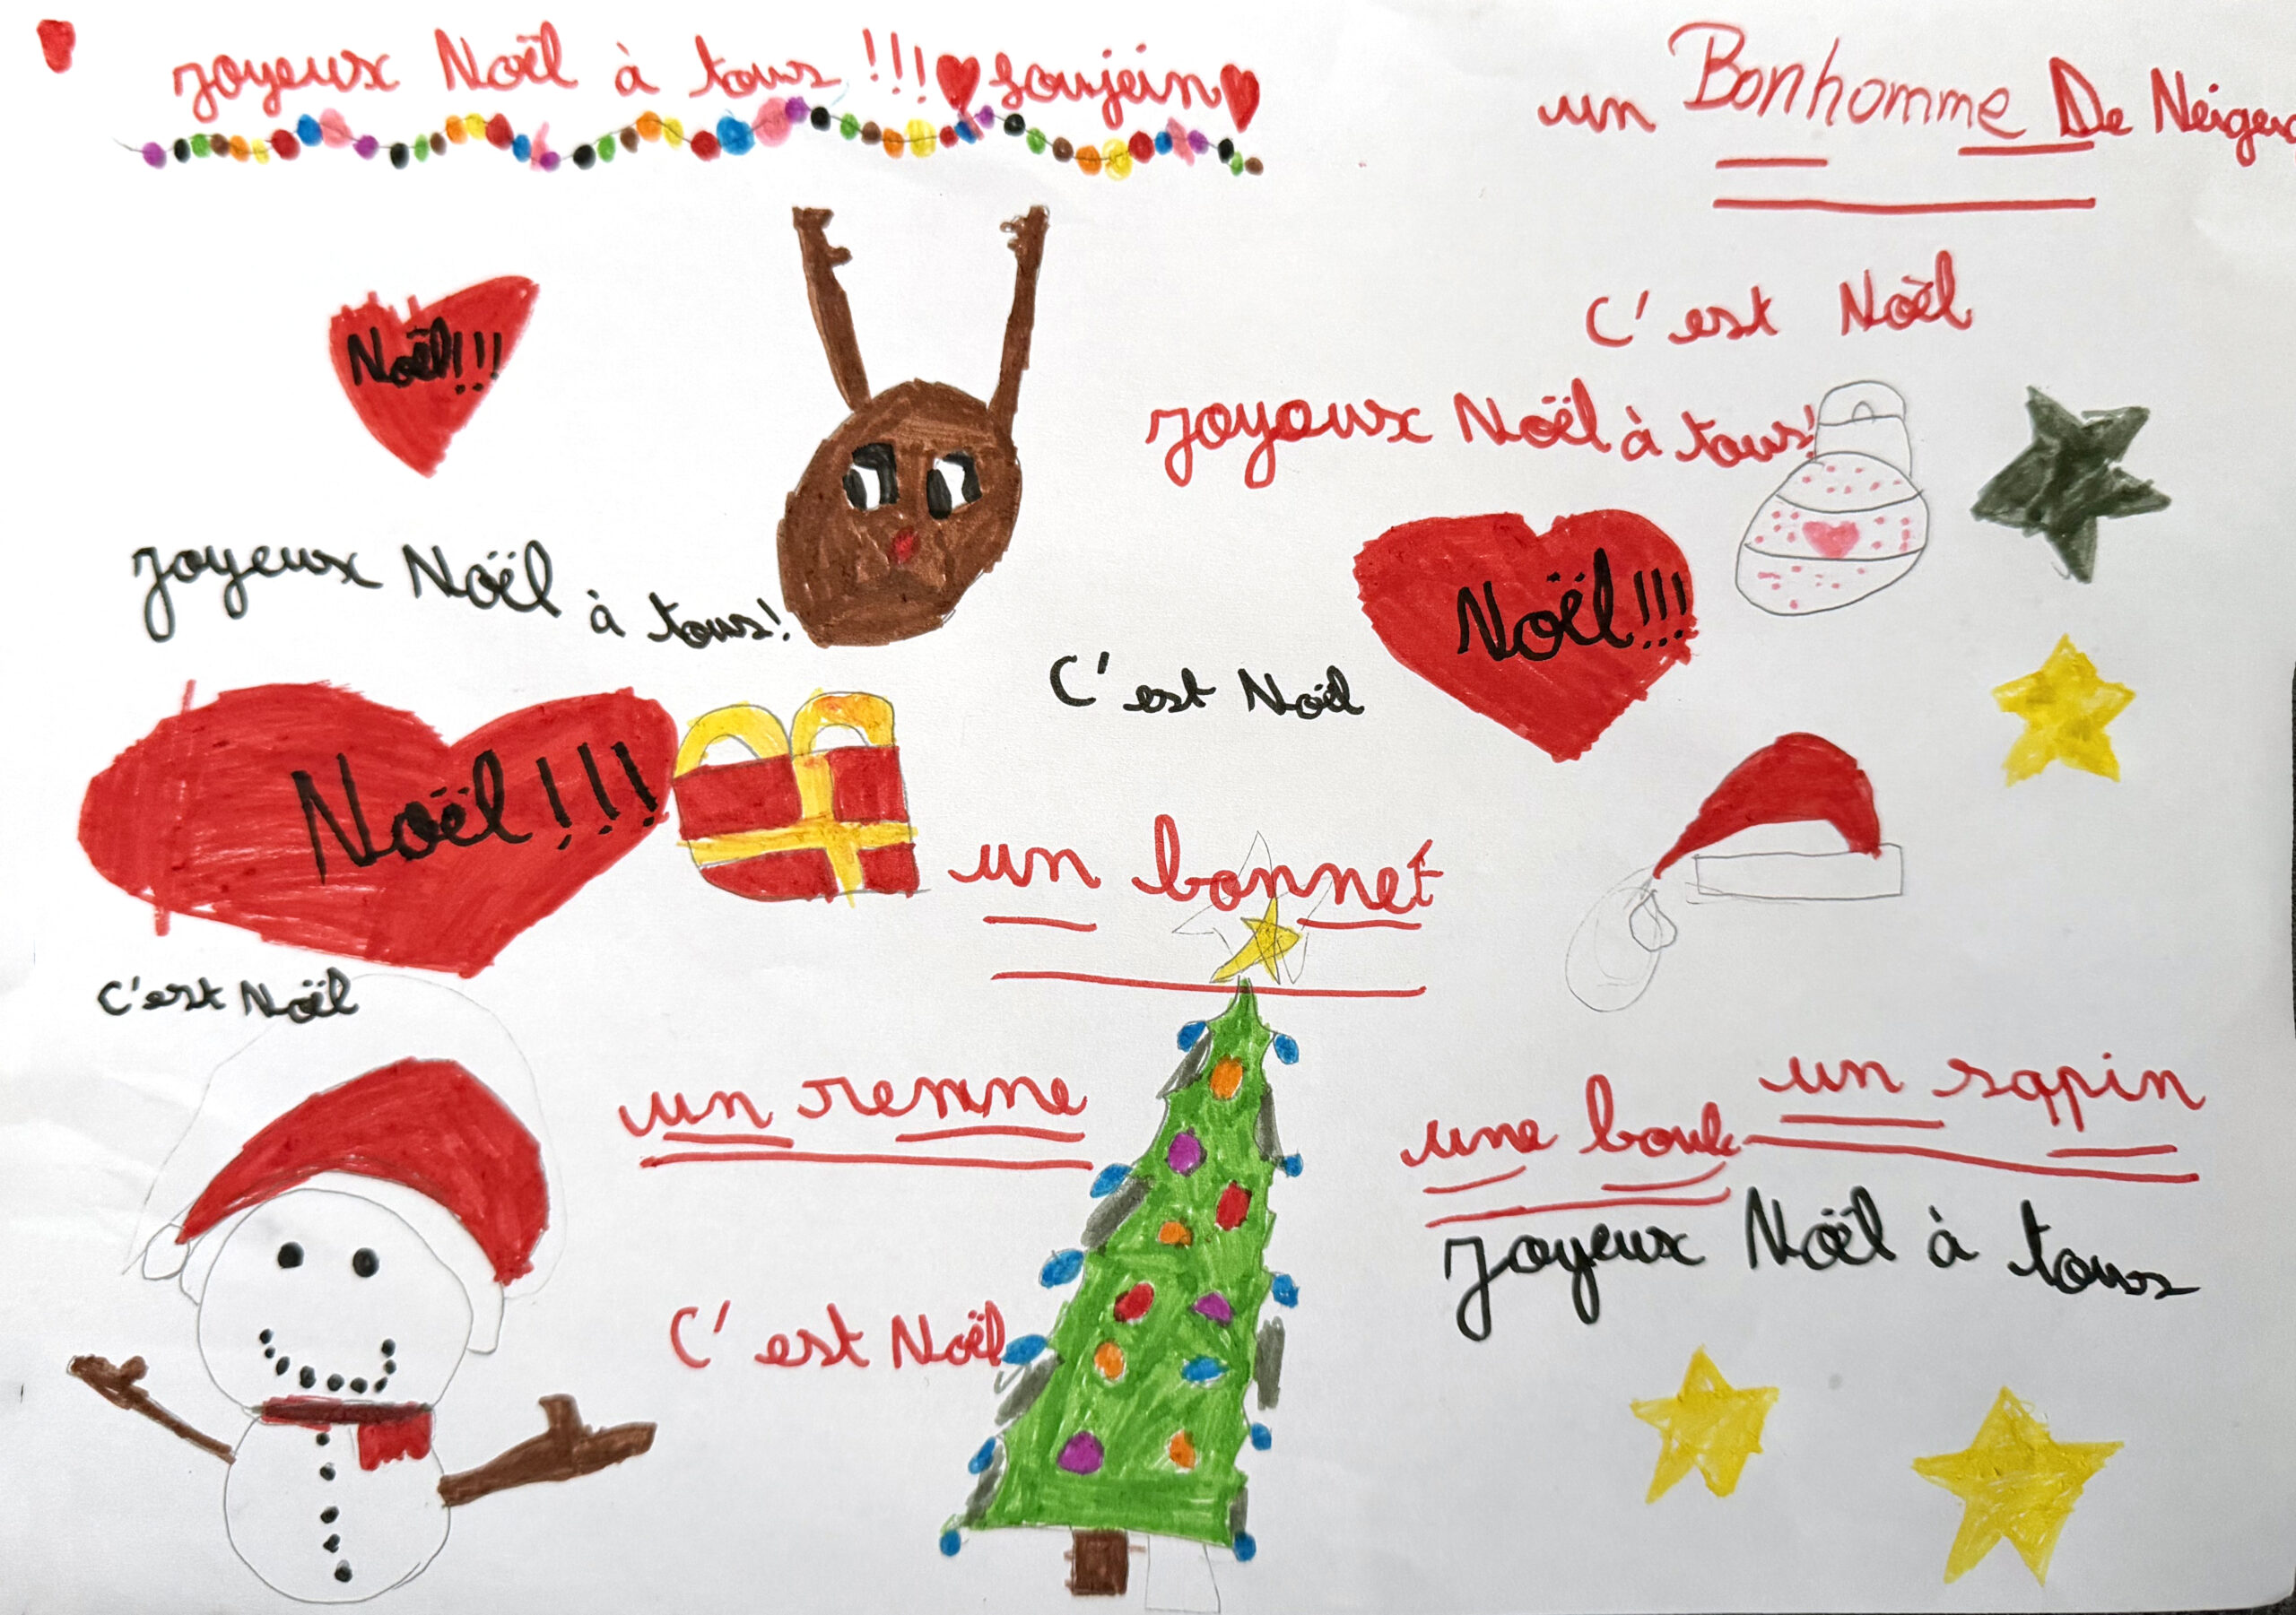 joyeux Noël à tous !!! soujein
un Bonhomme De Neige
C'est Noël
Noël!!!
joyoux Noël à tous!
joyeux Noël à tous!
Noël!!!
C'est Noël
Noël!!!
un bonnet
C'est Noël
un renne
un sapin
une boule
joyeux Noël à tous
C'est Noël